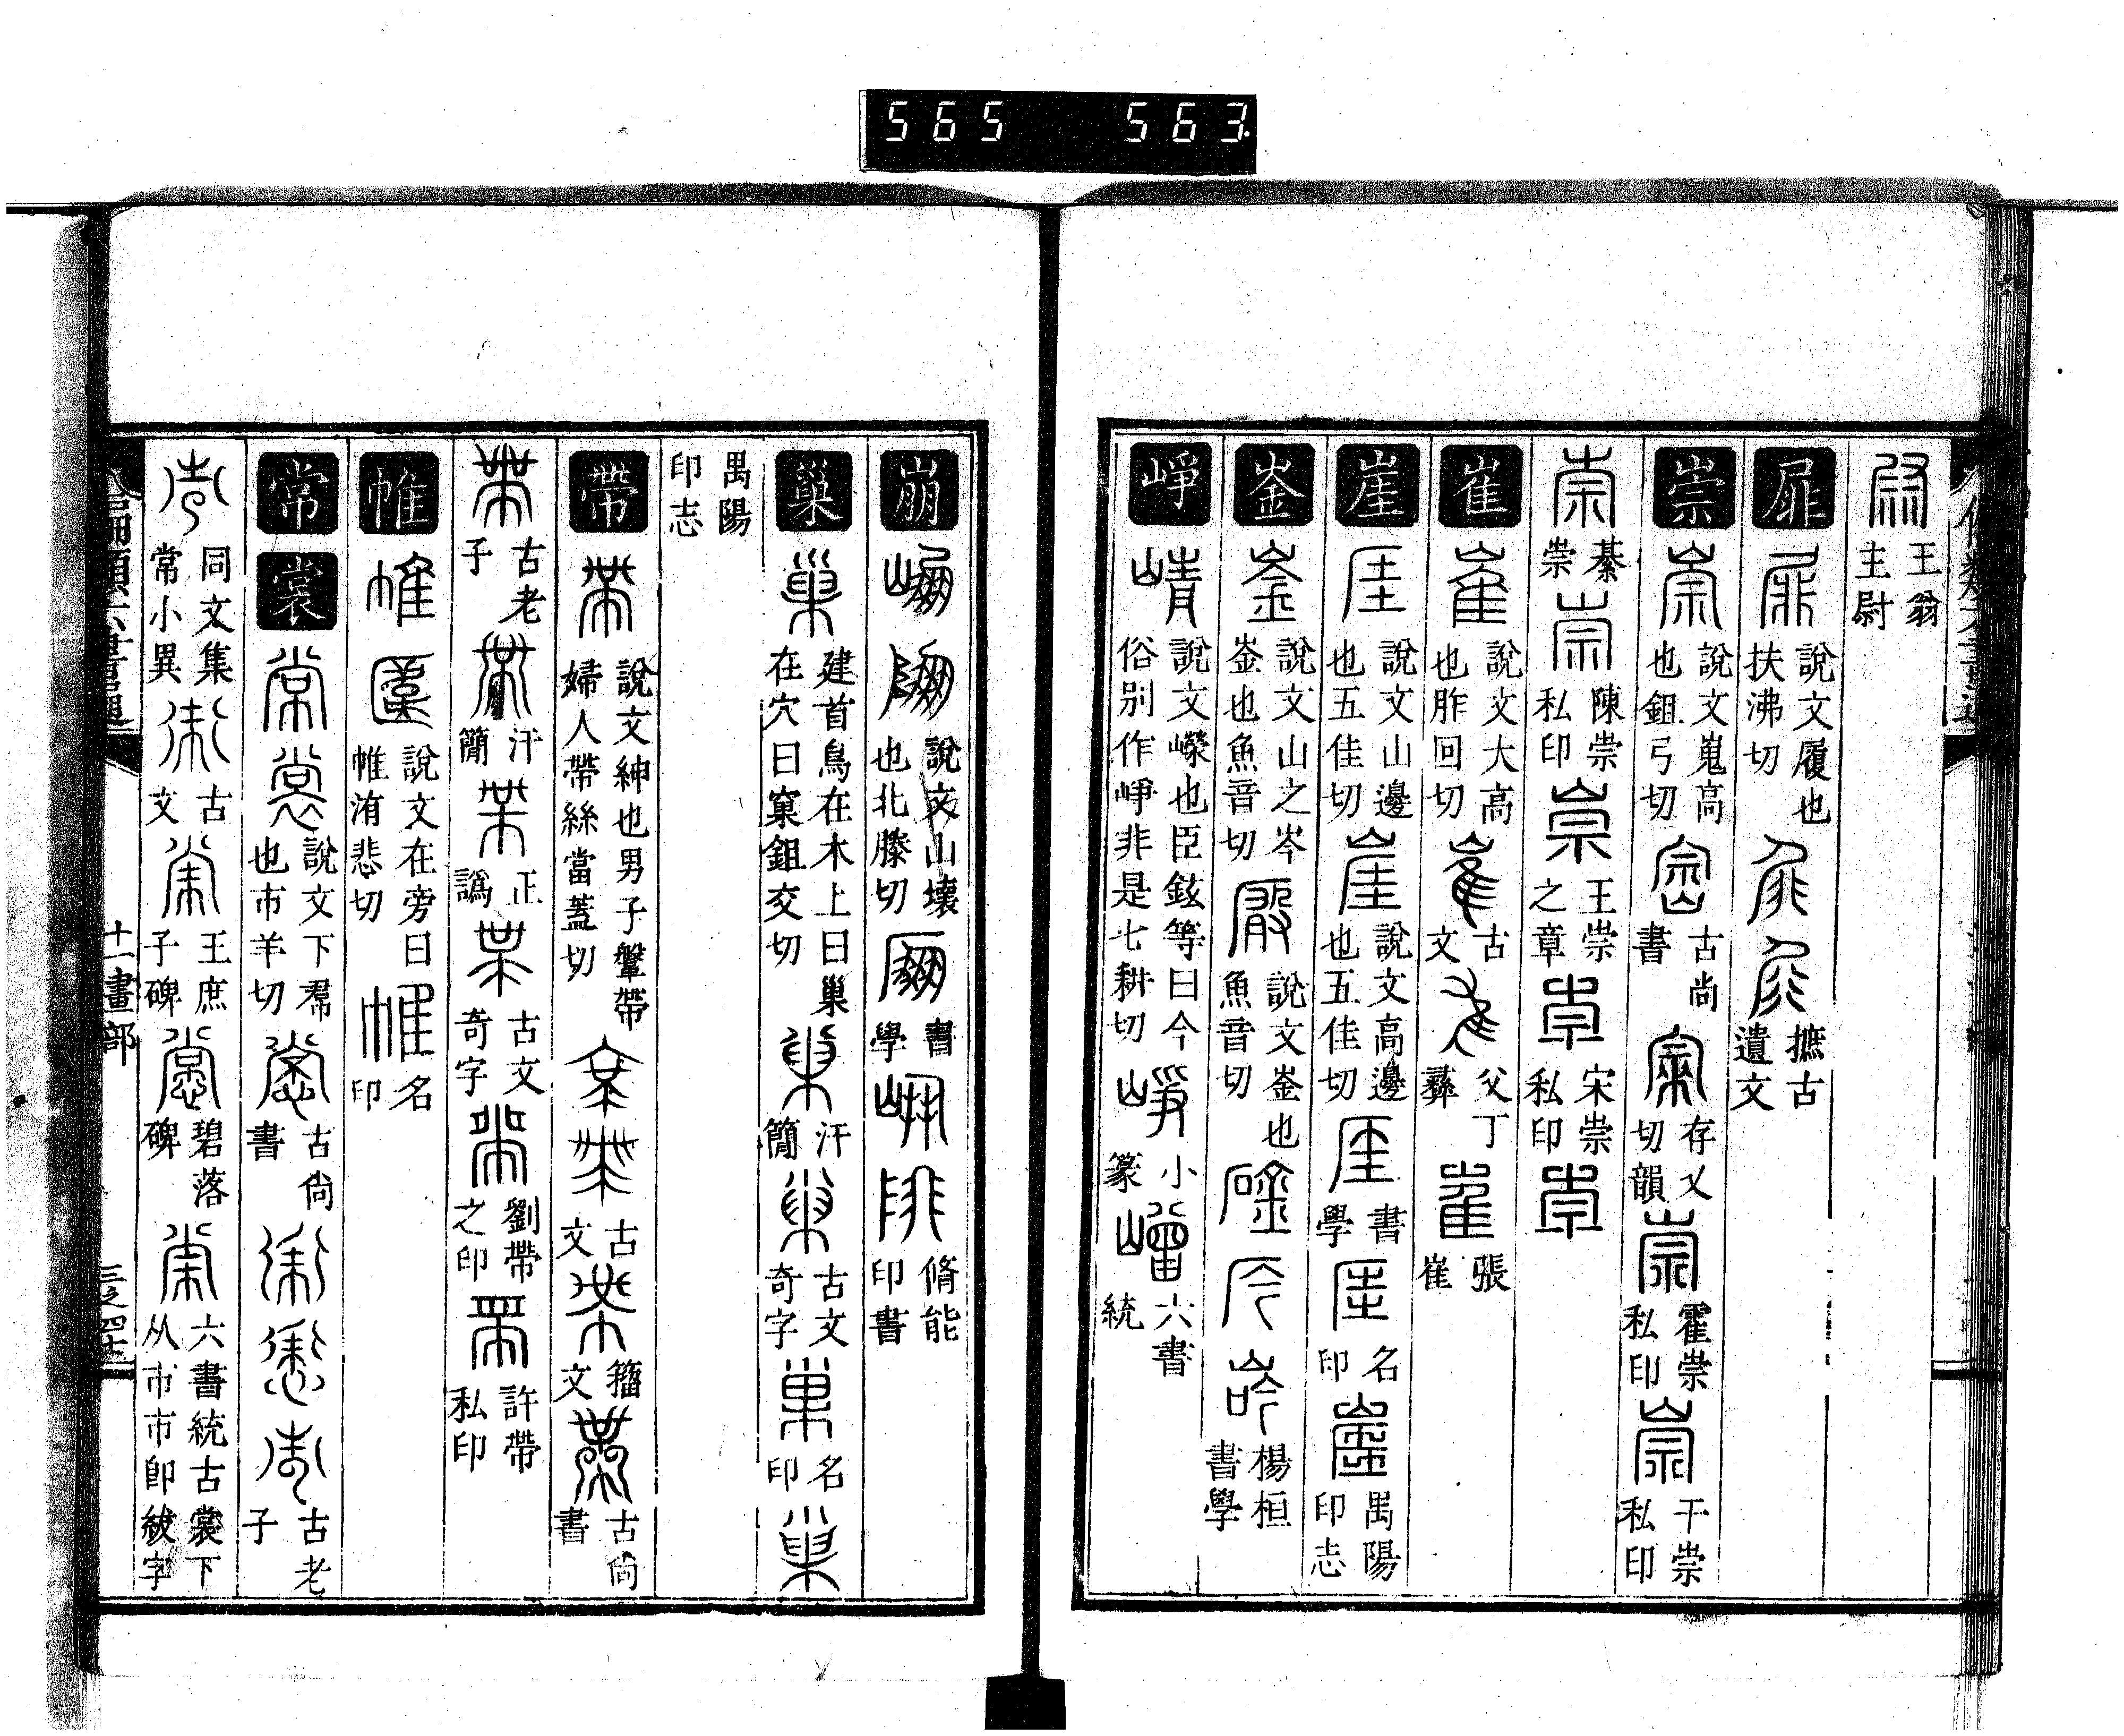 565 563
王翁
主尉
屝
說文履也
扶沸切
摭古
遺文
崇
說文嵬高
也鉏弓切
古尚
書
存乂
切韻
霍崇
私印
干崇
私印
綦
崇
陳崇
私印
王崇
之章
宋崇
私印
崔
說文大高
也胙回切
古
文
父丁
彝
張
崔
崖
說文山邊
也五佳切
說文高邊
也五佳切
書
學
名
印
禺陽
印志
崟
說文山之岑
崟也魚音切
說文崟也
魚音切
楊桓
書學
崢
說文嶸也臣鉉等曰今
俗別作崢非是七耕切
小
篆
六書
統
崩
說文山壞
也北滕切
書
學
脩能
印書
巢
建首鳥在木上曰巢
在穴曰窠鉏交切
汗
簡
古文
奇字
名
印
禺陽
印志
帶
說文紳也男子鞶帶
婦人帶絲當蓋切
古
文
籀
文
古尚
書
古老
子
汗
簡
正
譌
古文
奇字
劉帶
之印
許帶
私印
帷
說文在旁曰
帷洧悲切
名
印
常
裳
說文下帬
也市羊切
古尚
書
古老
子
同文集
常小異
古
文
王庶
子碑
碧落
碑
六書統古裳下
从市市即紱字
十一畫部